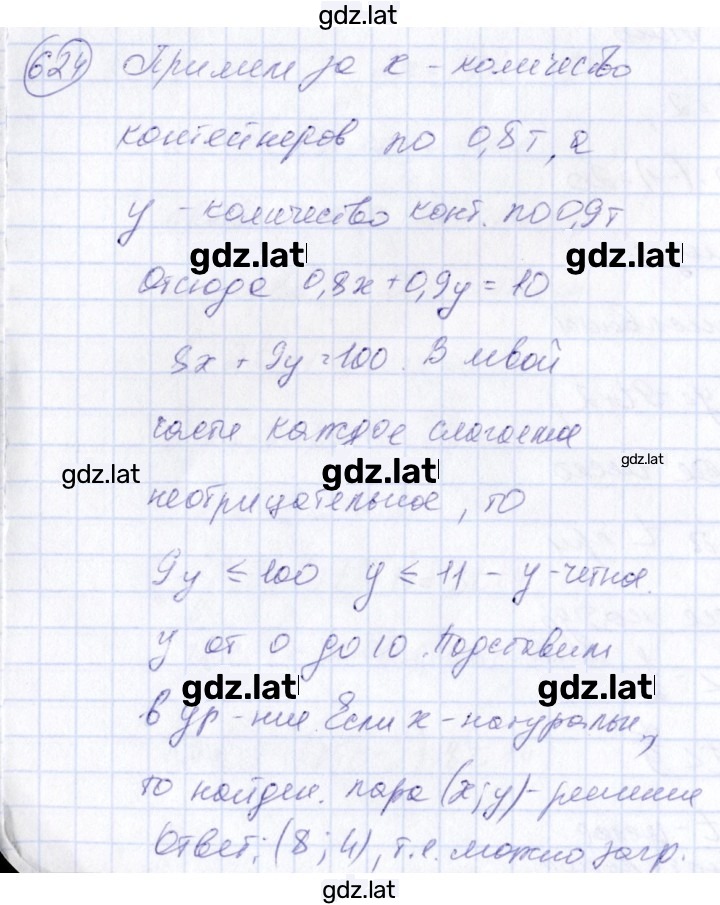 gdz.lat
624 Примем за x - количество
контейнеров по 0,8т, а
y - количество конт. по 0,9т
gdz.lat gdz.lat
Отсюда 0,8x + 0,9y = 10
8x + 9y = 100. В левой
части каждое слагаемое
gdz.lat gdz.lat gdz.lat
неотрицательное, то
9y ≤ 100 y ≤ 11 - y - четное.
y от 0 до 10. Подставим
gdz.lat gdz.lat
в ур-ние. Если x - натуральн.,
то найден. пара (x; y) - решение
Ответ: (8; 4), т.е. можно загр.
gdz.lat